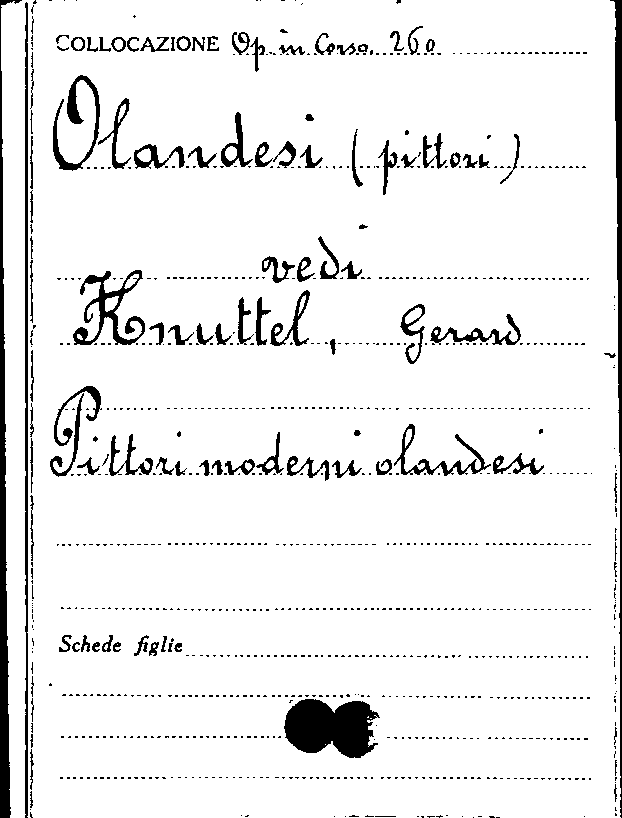 COLLOCAZIONE Op. in Corso. 260
Olandesi (pittori)
vedi
Knuttel, Gerard
Pittori moderni olandesi
Schede figlie